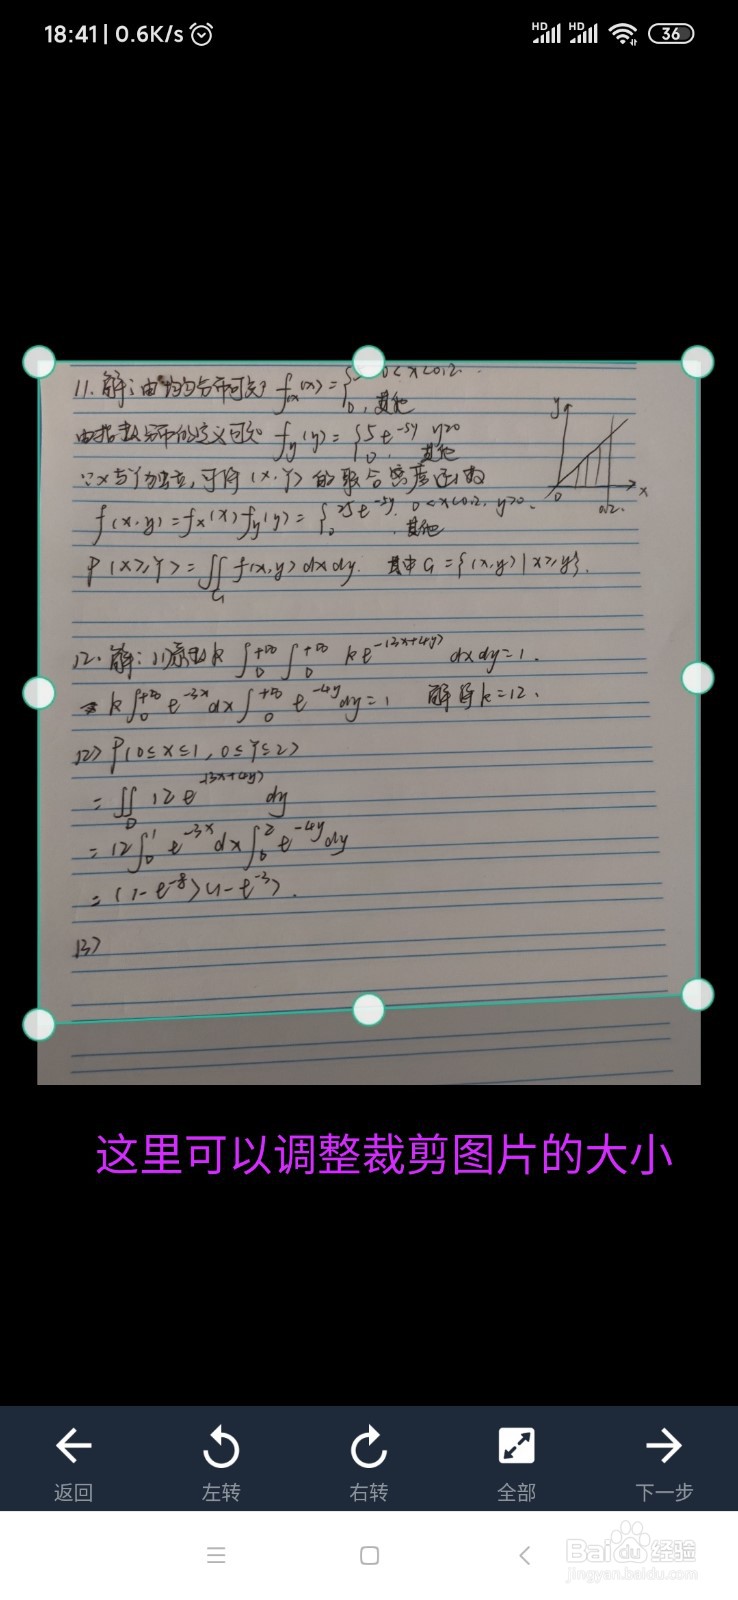 18:41 | 0.6K/s HD HD 36
11. 解: 由均匀分布可知 fx(x) = { 5 0<x<0.2.
0, 其他
由指数分布的定义可知 fy(y) = { 5e^-5y y>0
0. 其他
∵X与Y独立, 可得(X,Y)的联合密度函数
f(x,y) = fx(x) fy(y) = { 25e^-5y. 0<x<0.2, y>0.
0 , 其他
P(X≥Y) = ∬G f(x,y) dxdy. 其中G={(x,y)|x≥y}.
y
0 0.2 x
12. 解: (1) ∫0^+∞ ∫0^+∞ ke^-(3x+4y) dxdy=1.
k∫0^+∞ e^-3x dx∫0^+∞ e^-4y dy=1 解得k=12.
(2) P(0≤X≤1, 0≤Y≤2)
= ∬D 12e^-(3x+4y) dy
= 12∫0^1 e^-3x dx∫0^2 e^-4y dy
= (1-e^-8)(1-e^-3).
(3)
这里可以调整裁剪图片的大小
返回 左转 右转 全部 下一步
Baidu经验
jingyan.baidu.com